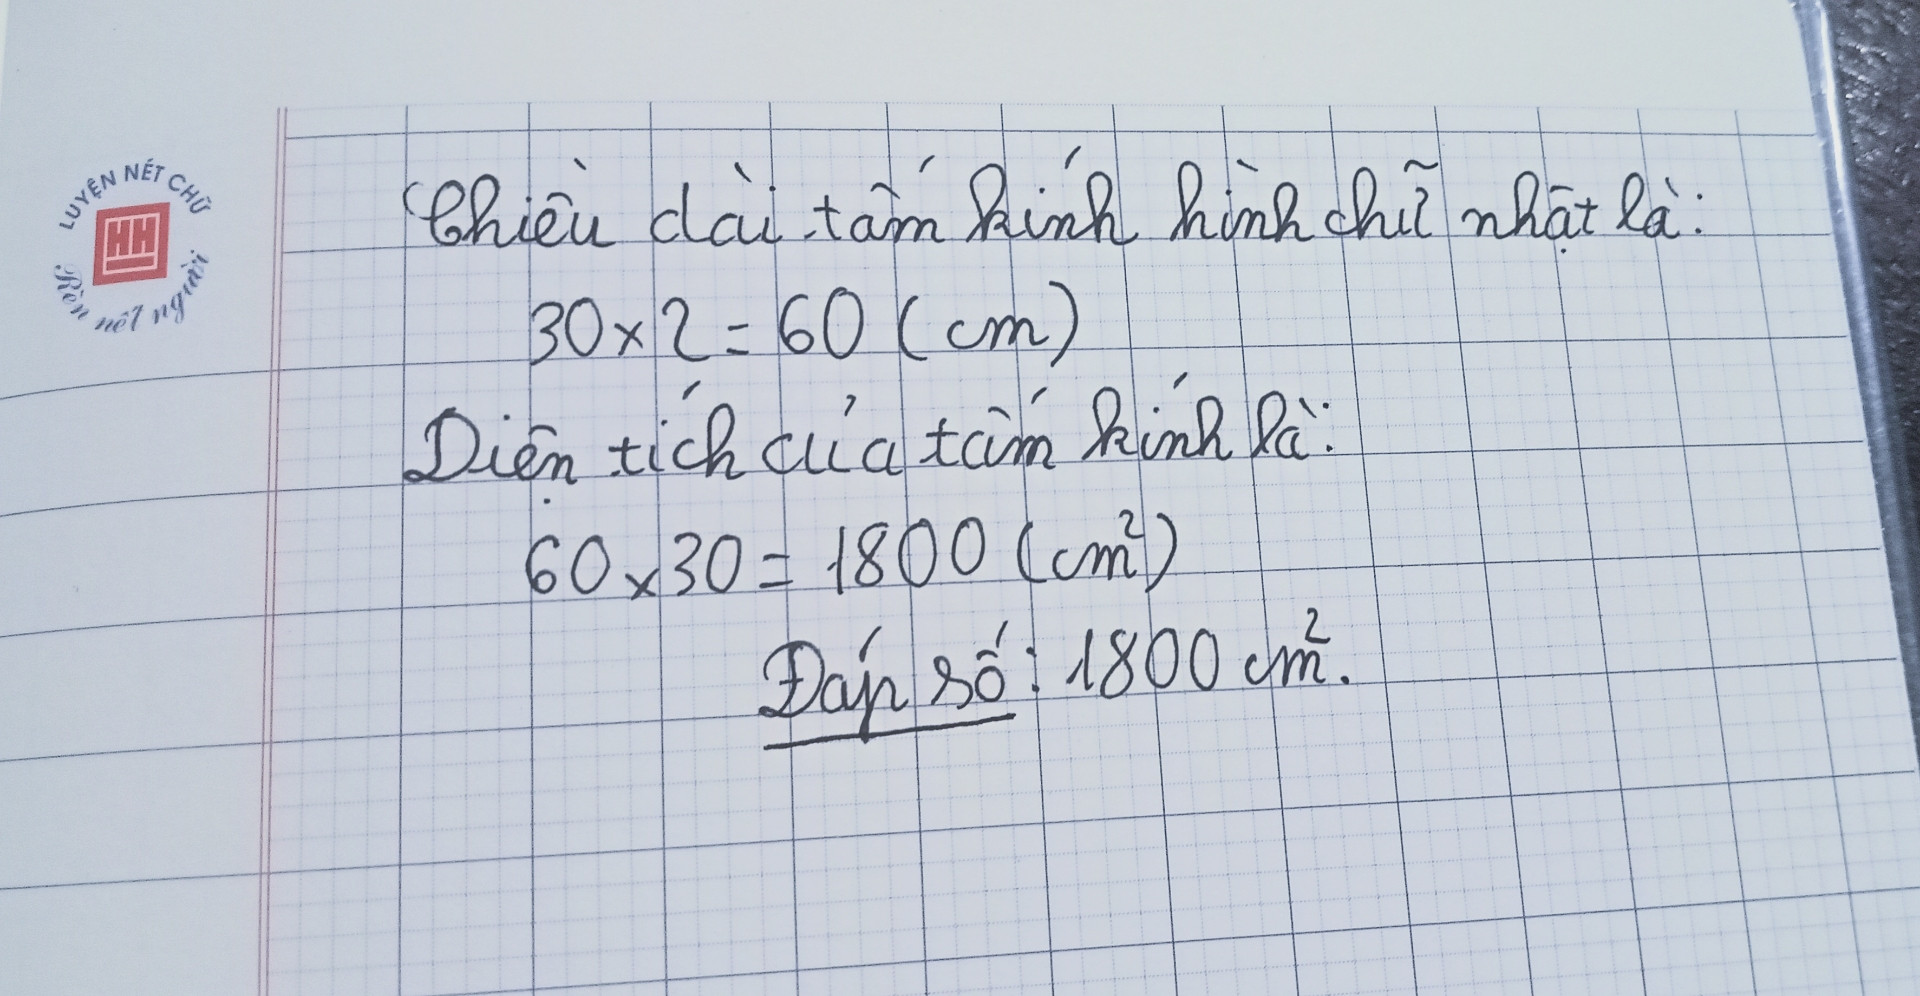 LUYỆN NÉT CHỮ
HH
Rèn nết người
Chiều dài tấm kính hình chữ nhật là:
30 x 2 = 60 (cm)
Diện tích của tấm kính là:
60 x 30 = 1800 (cm²)
Đáp số: 1800 cm².